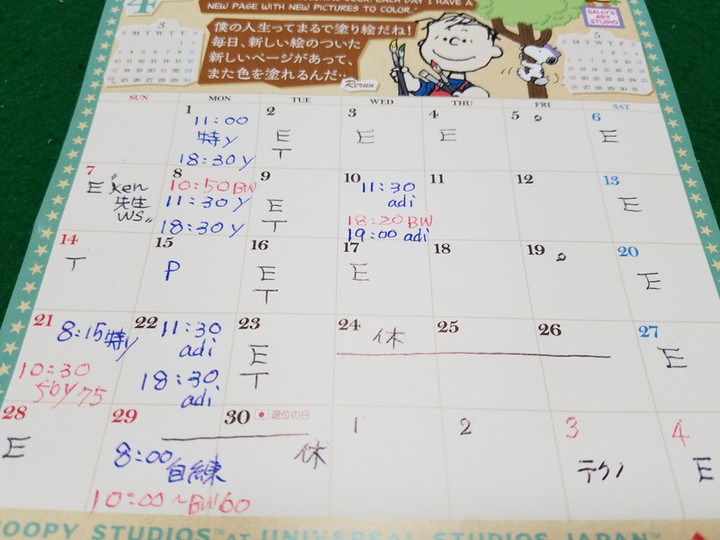 4
NEW PAGE WITH NEW PICTURES TO COLOR."
僕の人生ってまるで塗り絵だね!
毎日、新しい絵のついた
新しいページがあって、
また色を塗れるんだ…
Rerun
SALLY'S
ART
STUDIO
3
S M T W T F S
5
S M T W T F S
SUN MON TUE WED THU FRI SAT
1 11:00
特y
18:30y
2 E
T
3 E
4 E
5
6 E
7 E "Ken
先生
WS"
8 10:50BW
11:30y
18:30y
9 E
T
10 11:30
adi
18:20BW
19:00 adi
11
12
13 E
14 T
15 P
16 E
T
17 E
18
19
20 E
21 8:15特y
10:30
22 11:30
adi
18:30
adi
23 E
T
24 休
25
26
27 E
28 E
29 8:00
自練
10:00~BW60
30 退位の日
休
1
2
3 テクノ
4 E
SNOOPY STUDIOS™ AT UNIVERSAL STUDIOS JAPAN™